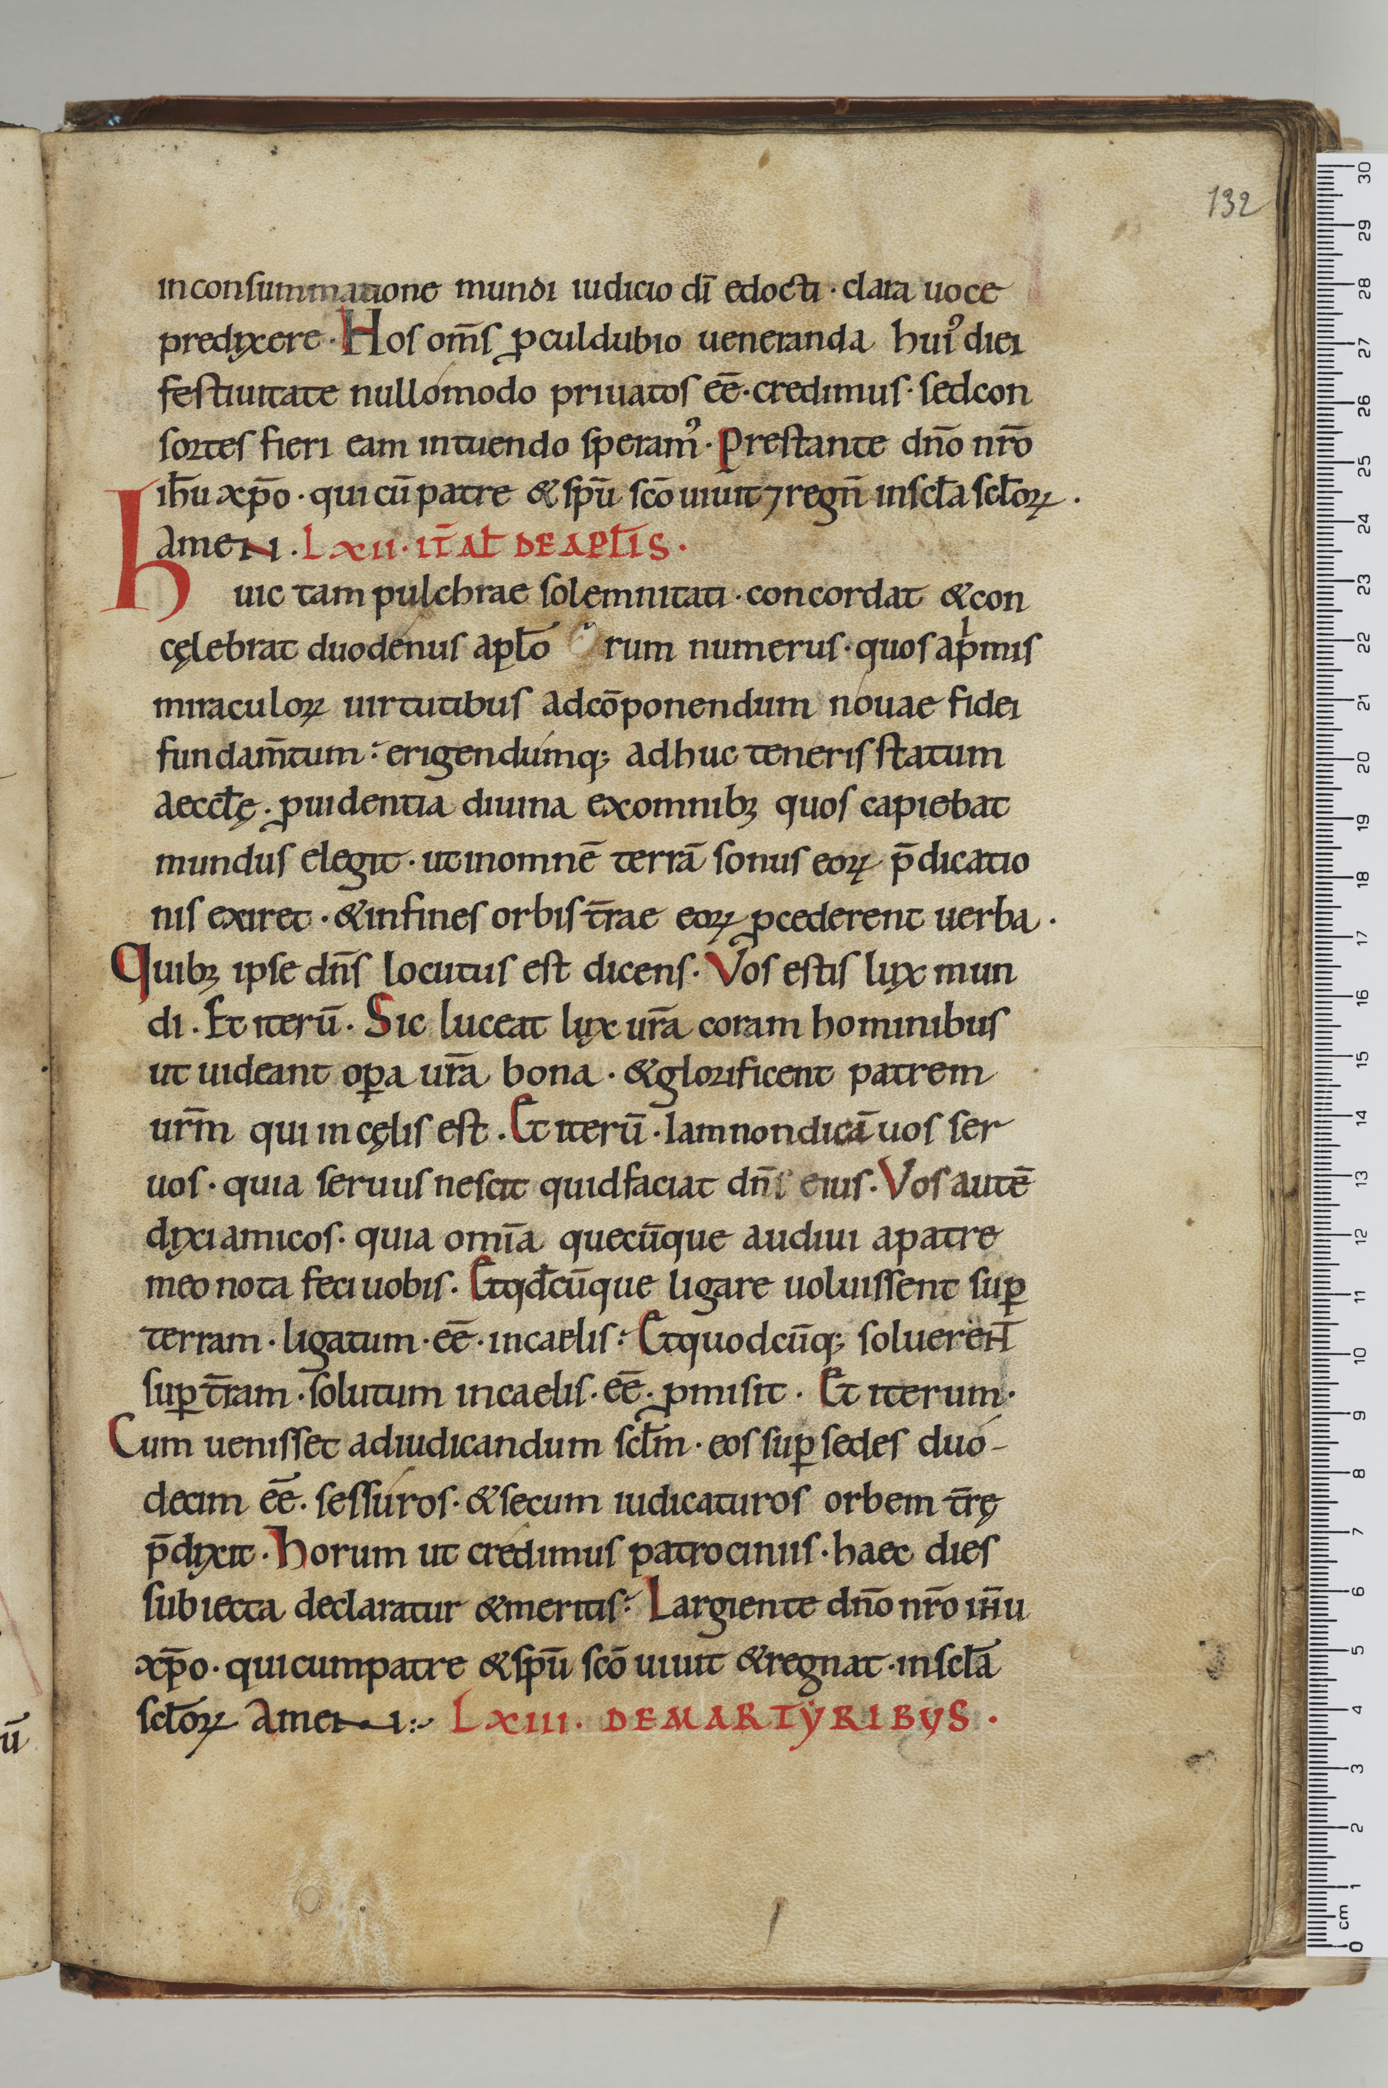 132
in consummatione mundi iudicio dī edocti · clara uoce
predixere · Hos om̄s ꝓculdubio ueneranda hui᾿ diei
festiuitate nullomodo priuatos eē · credimus · sed con
sortes fieri eam intuendo speram᾿ · Prestante dn̄o nr̄o
ih̄u xp̄o · qui cū patre & sp̄u scō uiuit ⁊ regn̄ in scl̄a scl̄oꝝ ·
AmeN · LXII · IT̄ AL̄ DE APL̄IS ·
Huic tam pulchrae solemnitati · concordat & con
cęlebrat duodenus apl̄o rum numerus · quos a pͥmis
miraculoꝝ uirtutibus ad cōponendum nouae fidei
fundam̄tum : erigendumq; adhuc teneris statum
aeccl̄ę · ꝓuidentia diuina ex omnibꝫ quos capiebat
mundus elegit · ut in omnē terrā sonus eoꝝ p̄dicatio
nis exiret · & in fines orbis t̄rae eoꝝ ꝓcederent uerba ·
Quibꝫ ipse dn̄s locutus est dicens · Vos estis lux mun
di · Et iterū · Sic luceat lux ur̄a coram hominibus
ut uideant oꝑa ur̄a bona · & glorificent patrem
ur̄m qui in cęlis est · Et iterū · Iam non dicā uos ser
uos · quia seruus nescit quid faciat dn̄s eius · Vos autē
dixi amicos · quia om̄ia quecūque audiui a patre
meo nota feci uobis · Et qđcūque ligare uoluissent suꝑ
terram · ligatum · eē · in caelis : Et quodcūq; soluerent
suꝑ t̄ram · solutum in caelis · eē · ꝓmisit · Et iterum ·
Cum uenisset ad iudicandum scl̄m · eos suꝑ sedes duo-
decim eē · sessuros · & secum iudicaturos orbem t̄rę
p̄dixit · Horum ut credimus patrociniis · haec dies
subiecta declaratur & meritis : Largiente dn̄o nr̄o ih̄u
xp̄o · qui cum patre & sp̄u scō uiuit & regnat · in scl̄a
scl̄oꝝ AmeN : LXIII · DE MARTYRIBUS ·